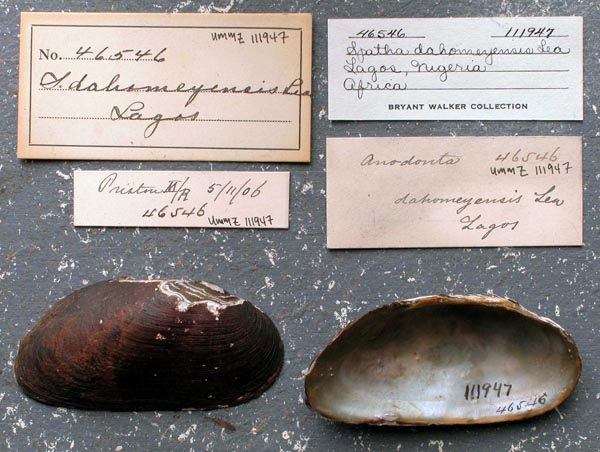 UMMZ 111947
No. 46546
S. dahomeyensis Lea
Lagos
46546 111947
Spatha dahomeyensis Lea
Lagos, Nigeria
Africa
BRYANT WALKER COLLECTION
Preston III/R 5/11/06
46546
UMMZ 111947
Anodonta 46546
UMMZ 111947
dahomeyensis Lea
Lagos
111947
46546